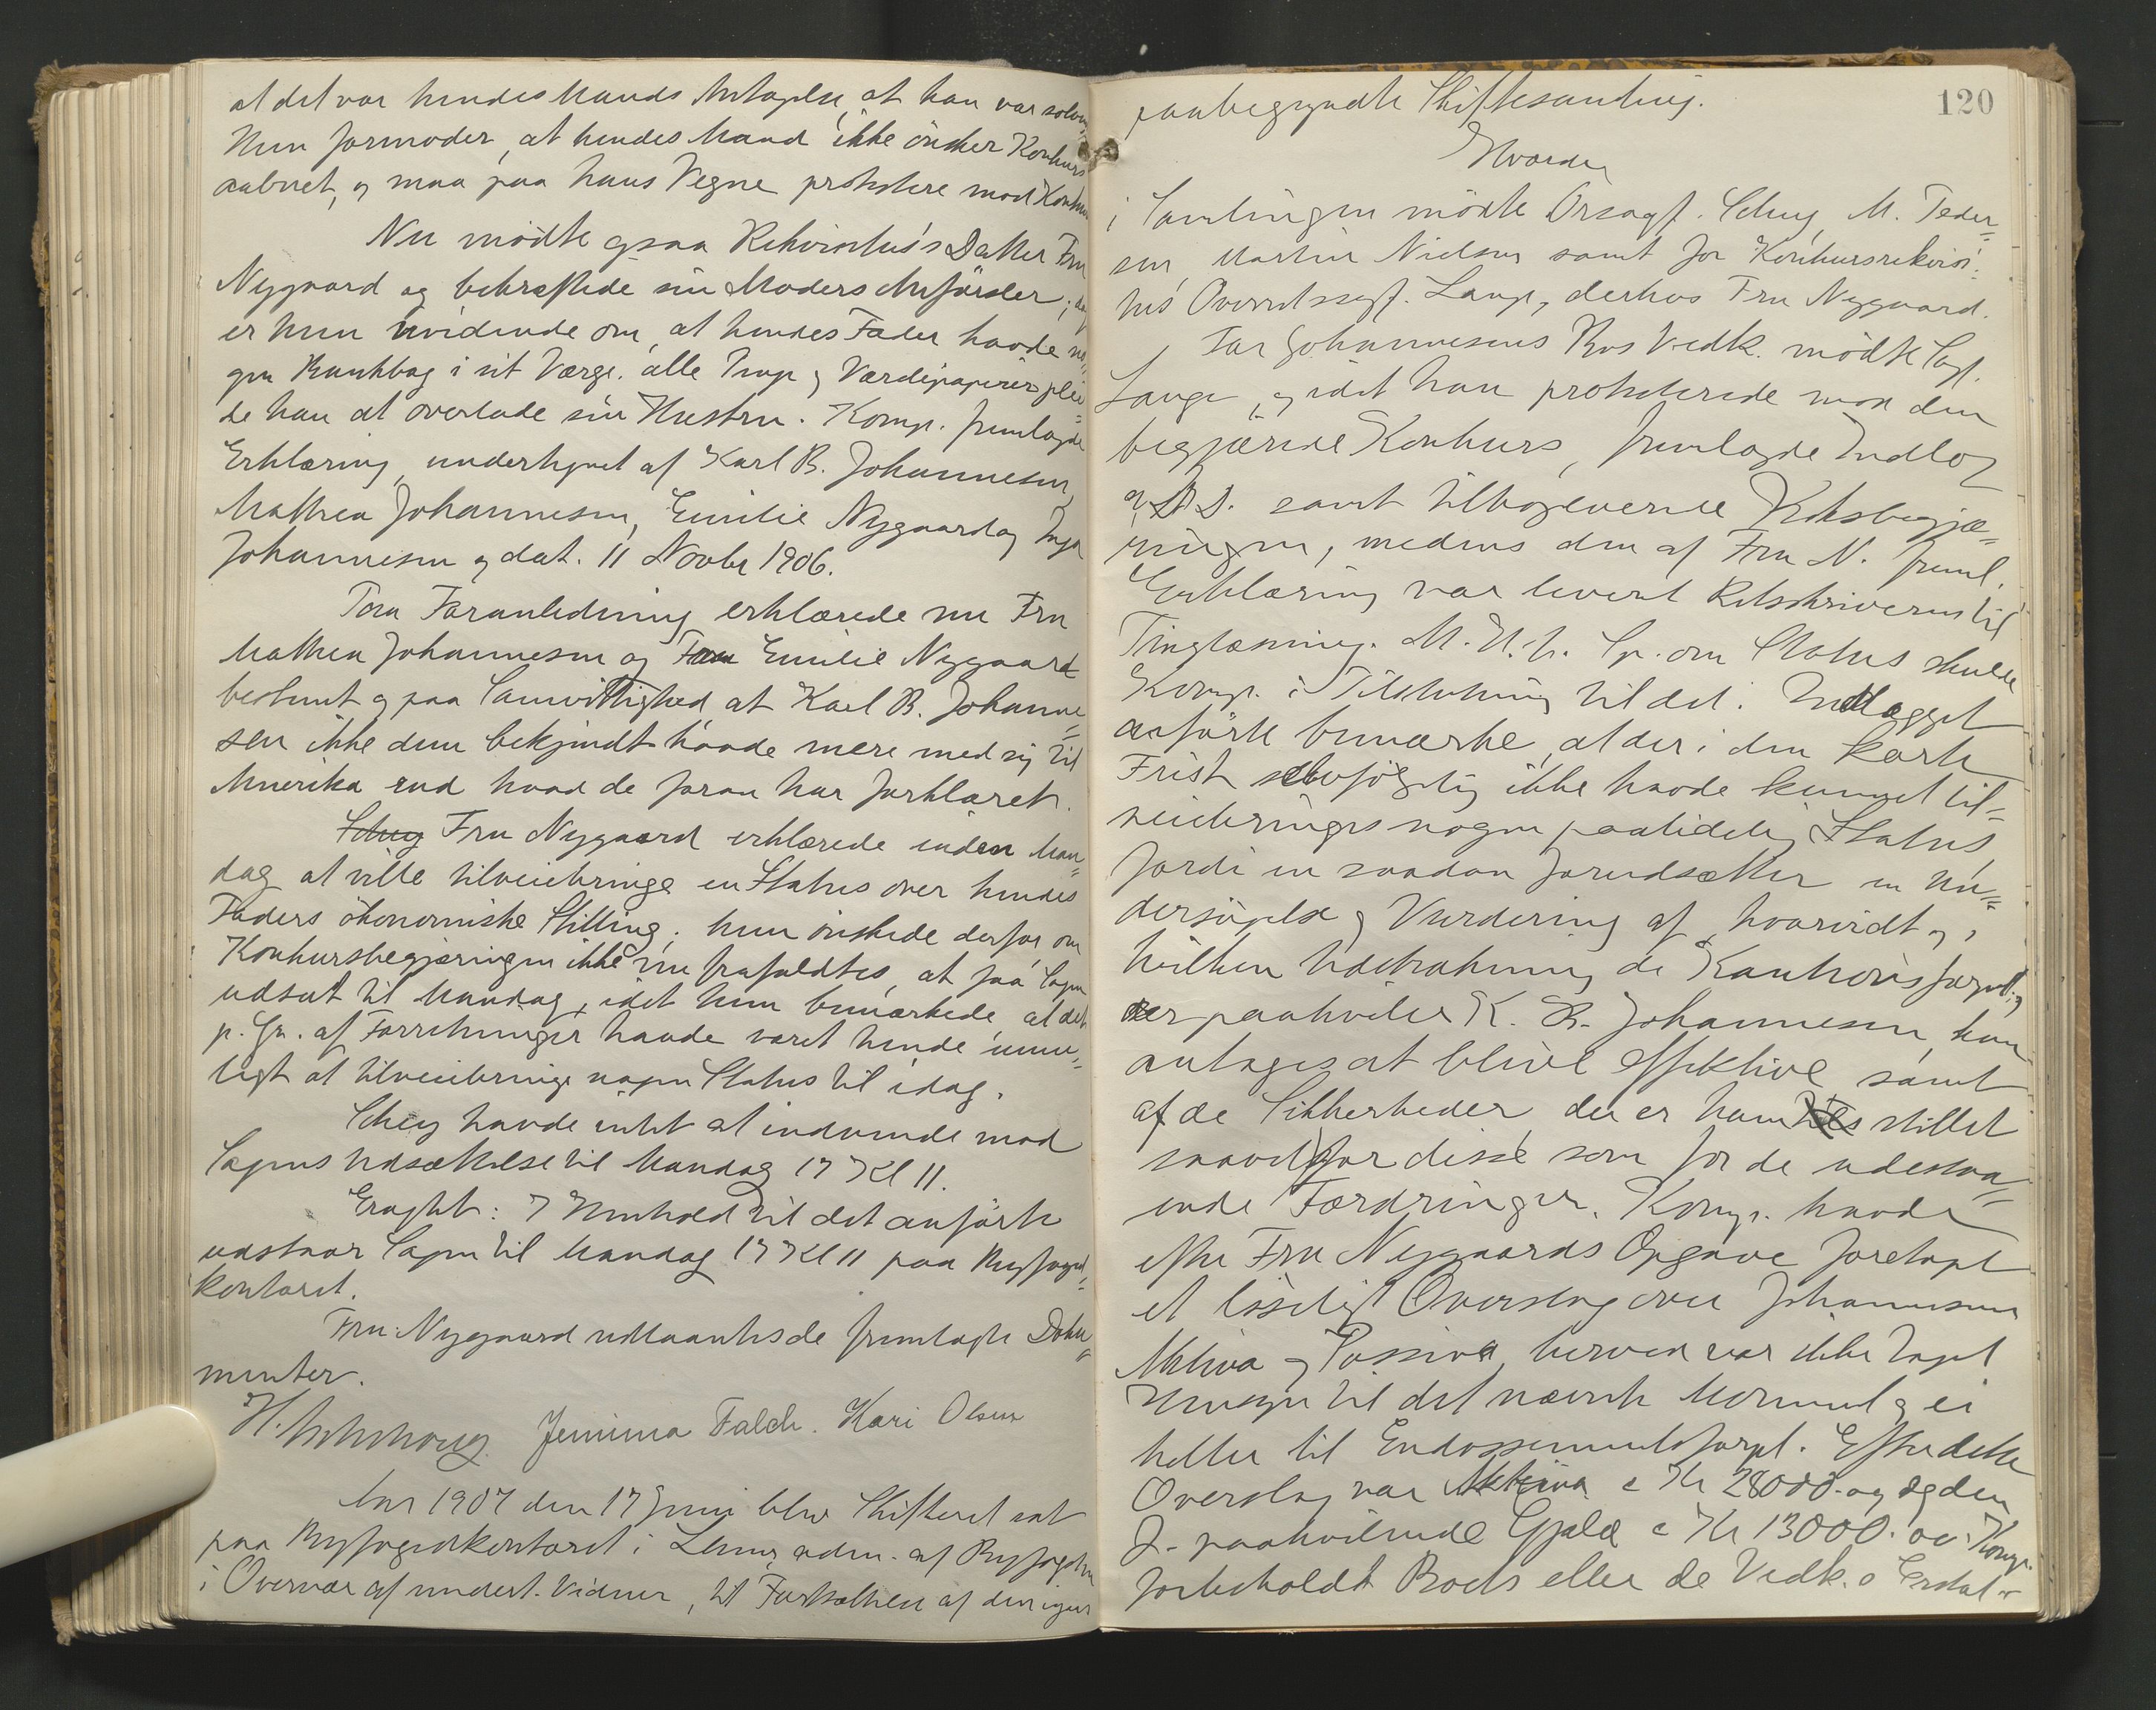 at det var hendes Mands Antagelse, at han var solvent
Hun formoder, at hendes Mand ikke önsker Konkurs
aabnet, og maa paa hans Vegne protestere mod Konkurs
Nu mödte ogsaa Rekvisitus's Datter Fru
Nygaard og bekræftede sin Moders Anförsler;
er hun uvidende om, at hendes Fader havde no=
gen Bankbog i sit Værge. Alle Penge og Værdipapirer plei=
de han at overlade sin Hustru. Komp. fremlagde
Erklæring, undertegnet af Karl B. Johannesen,
Mathea Johannesen, Emilie Nygaard og Inga
Johannesen og dat. 11 Novbr 1906.
Paa Foranledning erklærede nu Fru
Mathea Johannesen og Fru Emilie Nygaard
bestemt og paa Samvittighed at Karl B. Johanne=
sen ikke dem bekjendt havde mere med sig til
Amerika end hvad de foran har forklaret.
Schey Fru Nygaard erklærede inden Man=
dag at ville tilveiebringe en Status over hendes
Faders ökonomiske Stilling; hun önskede derfor, om
Konkursbegjæringen ikke nu frafaldtes, at faa Sagen
udsat til Mandag, idet hun bemærkede, at det
p. Gr. af Forretninger havde været hende umu=
ligt at tilveiebringe nogen Status til idag.
Schey havde intet at indvende mod
Sagens Udsættelse til Mandag 17 Kl 11.
Eragtet: I Henhold til det anförte
udstaar Sagen til Mandag 17 Kl 11 paa Byfoged=
kontoret.
Fru Nygaard udlaantes de fremlagte Doku=
menter.
Jemima Falch. Kari Olsen
Aar 1907 den 17 Juni blev Skifteret sat
paa Byfogedkontoret i adm. af Byfogden
i Overvær af undert. Vidner, til Fortsættelse af den igaar
120
paabegyndte Skiftesamling.
Hvorda
i Samlingen mödte Orsagf. Schey, M. Peder=
sen, Martin Nielsen samt for Konkursrekvisi=
tus Overretssagf. Lange, derhos Fru Nygaard.
For Johannesens Bos Vedk. mödte Sagf.
Lange, og idet han protesterede mod den
begjærede Konkurs, fremlagde Indlæg
af D. D. samt tilbageleverede Konkursbegjæ=
ringen, medens den af Fru N. freml.
Erklæring var levert Retsskriveren til
Tinglæsning. M. H. t. Sp. om Status skulde
Komp. i Tilslutning til det i Indlægget
anförte bemærke, at der i den korte
Frist selvfölgelig ikke havde kunnet til=
veiebringes nogen paalidelig Status,
fordi en saadan forudsætter en Un=
dersögelse og Vurdering af, hvorvidt og i
hvilken Udstrækning de Kautionsforpl.,
der paahviler K. B. Johannesen, kan
antages at blive effektive samt
af de Sikkerheder, der er ham stillet
saavel for disse som for de udestaa=
ende Fordringer. Komp. havde
efter Fru Nygaards Opgave foretaget
et löseligt Overslag over Johannesens
Aktiva og Passiva, herved var ikke taget
Hensyn til det nævnte Moment og ei
heller til Endossementsforpl. Efter dette
Overslag var Aktiva c Kr 28000.- og og den
J. paahvilende Gjæld c Kr 13000.- Komp.
forbeholdt Boets eller de Vedk.s Erstat=